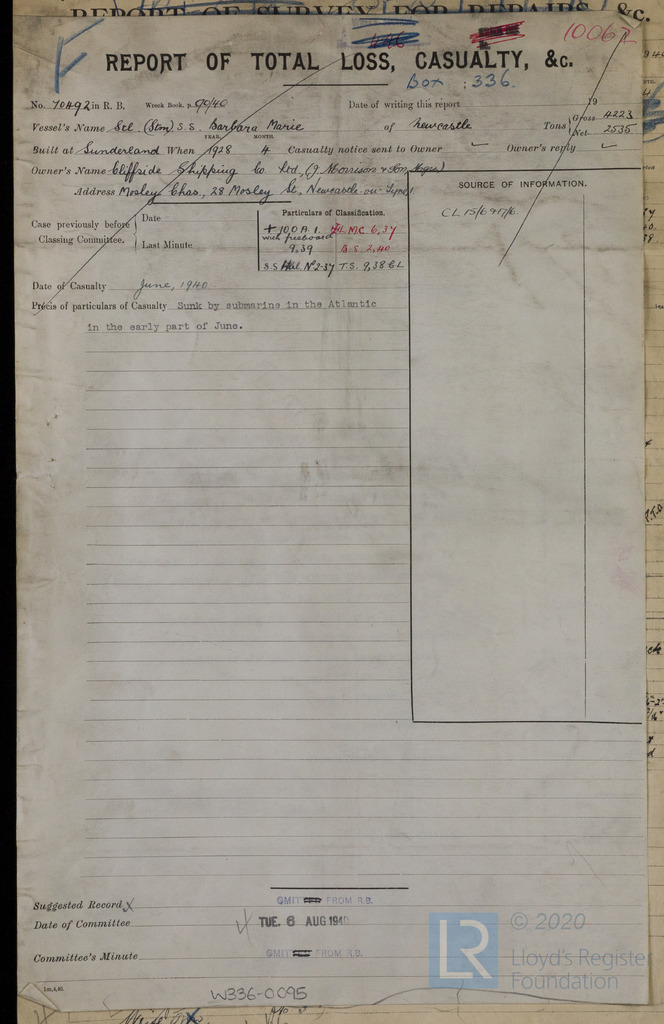 REPORT OF SURVEY FOR REPAIRS, &c.
10067
REPORT OF TOTAL LOSS, CASUALTY, &c.
Box : 336
No. 70492 in R. B. Wreck Book, p. 90/40 Date of writing this report 19
Vessel's Name Stl (Stm) S.S. Barbara Marie of Newcastle Tons Gross 4223
Net 2535
YEAR. MONTH.
Built at Sunderland When 1928 4 Casualty notice sent to Owner ✓ Owner's reply ✓
Owner's Name Cliffside Shipping Co. Ltd, (J Morrison & Son, Mgrs)
Address Mosley Chas, 28 Mosley St, Newcastle-on-Tyne 1.
SOURCE OF INFORMATION.
CL 15/6 & 17/6
Case previously before Classing Committee.
Date
Last Minute
Particulars of Classification.
+100A.1. +LMC 6,37
with freeboard
9,39 B.S. 2,40
S.S. No 2-37 T.S. 9,38 CL
Date of Casualty June, 1940
Précis of particulars of Casualty Sunk by submarine in the Atlantic
in the early part of June.
P.T.O
Suggested Record
OMIT FROM R.B.
Date of Committee
TUE. 6 AUG 1940
Committee's Minute
OMIT FROM R.B.
1m,4,40.
W336-0095
LR
© 2020
Lloyd's Register
Foundation